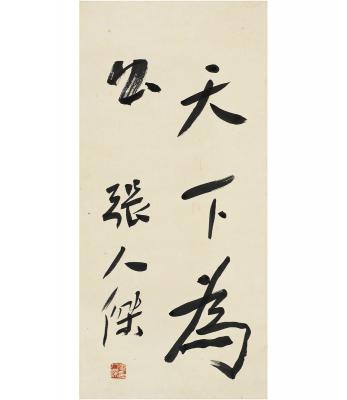 天下為
公 張人傑